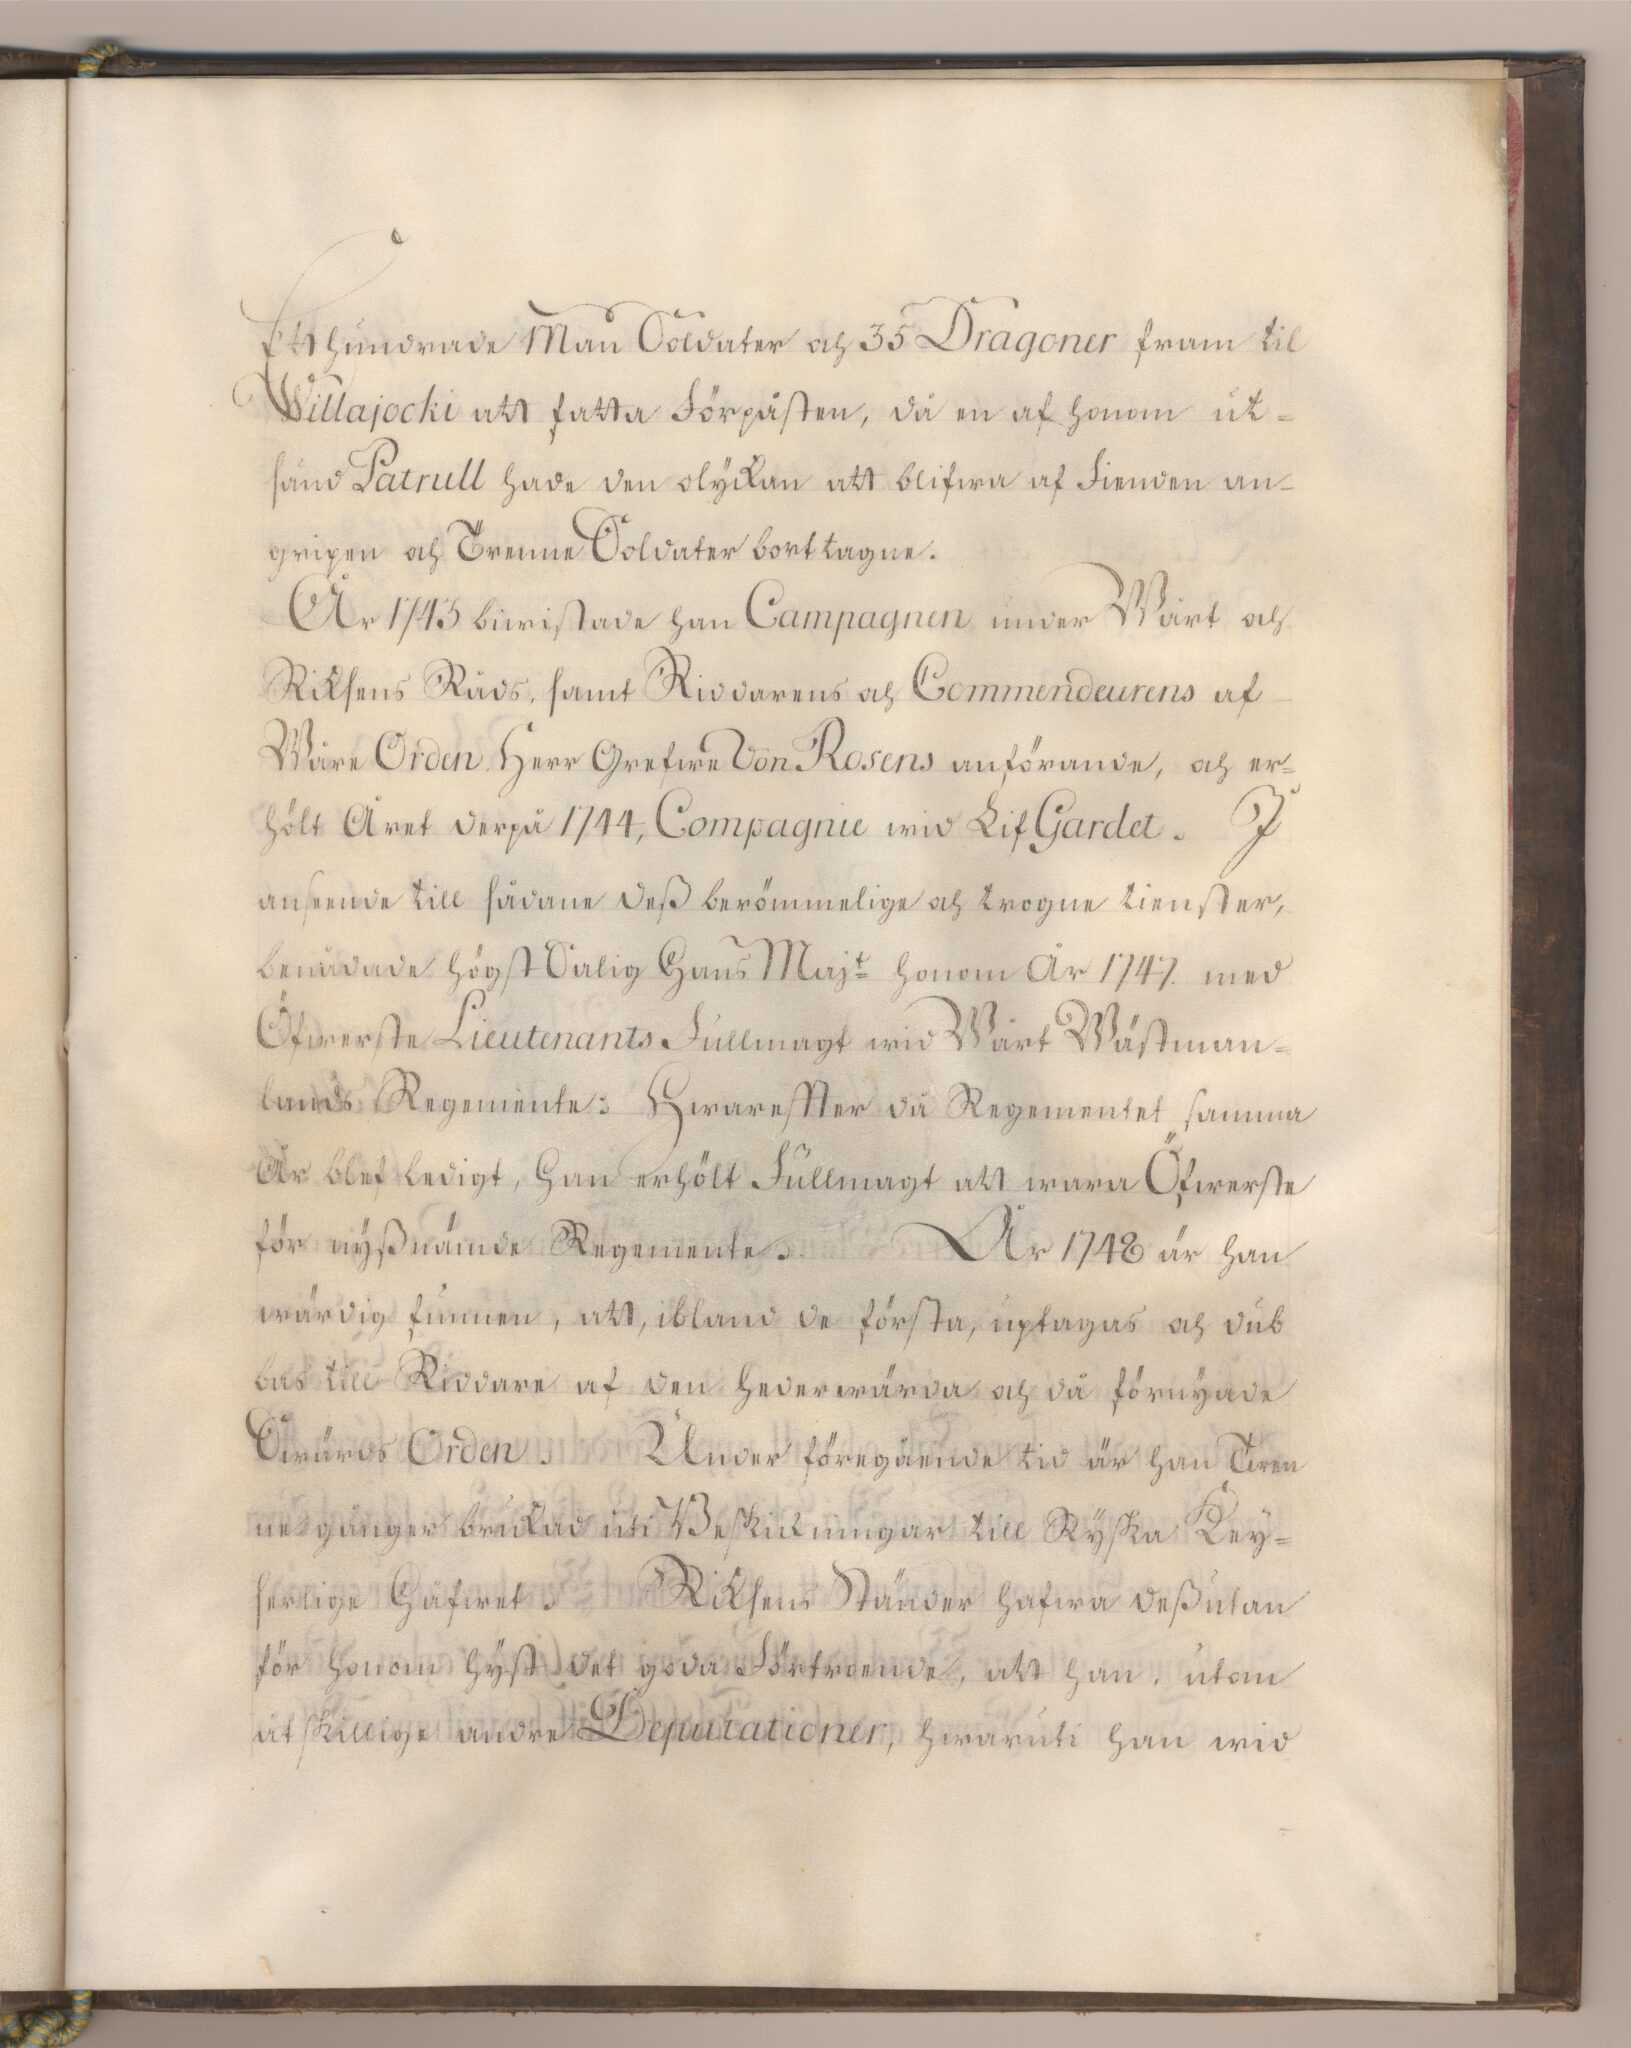 Ett hundrade Man Soldater och 35 Dragoner fram til
Willajocki att fatta Förpåsten, då en af honom ut=
sänd Patrull hade den olyckan att blifwa af Fienden an=
gripen och Trenne Soldater borttagne.
År 1743 biwistade han Campagnen under Wårt och
Riksens Råds, samt Riddarens och Commendeurens af
Wåre Orden Herr Grefwe Von Rosens anförande, och er=
hölt Året derpå 1744, Compagnie wid Lif Gardet. J
anseende till sådane deß berömmelige och trogne tienster,
benådade högst Salig Hans Majt honom År 1747. med
Öfwerste Lieutenants Fullmagt wid Wårt Wästman=
lands Regemente: Hwareffter då Regementet samma
År blef ledigt, han erhölt Fullmagt att wara Öfwerste
för nyßnämde Regemente. År 1748 är han
wärdig funnen, att, ibland de första, uptagas och dub
bas till Riddare af den hederwärda och då förnyade
Swärds Orden. Under föregående tid är han Tren
ne gånger brukad uti Beskickningar till Ryska Key=
serlige Håfwet. Riksens Ständer hafwa deßutan
för honom hyst det goda Förtroende, att han, utom
åtskillige andre Deputationer, hwaruti han wid